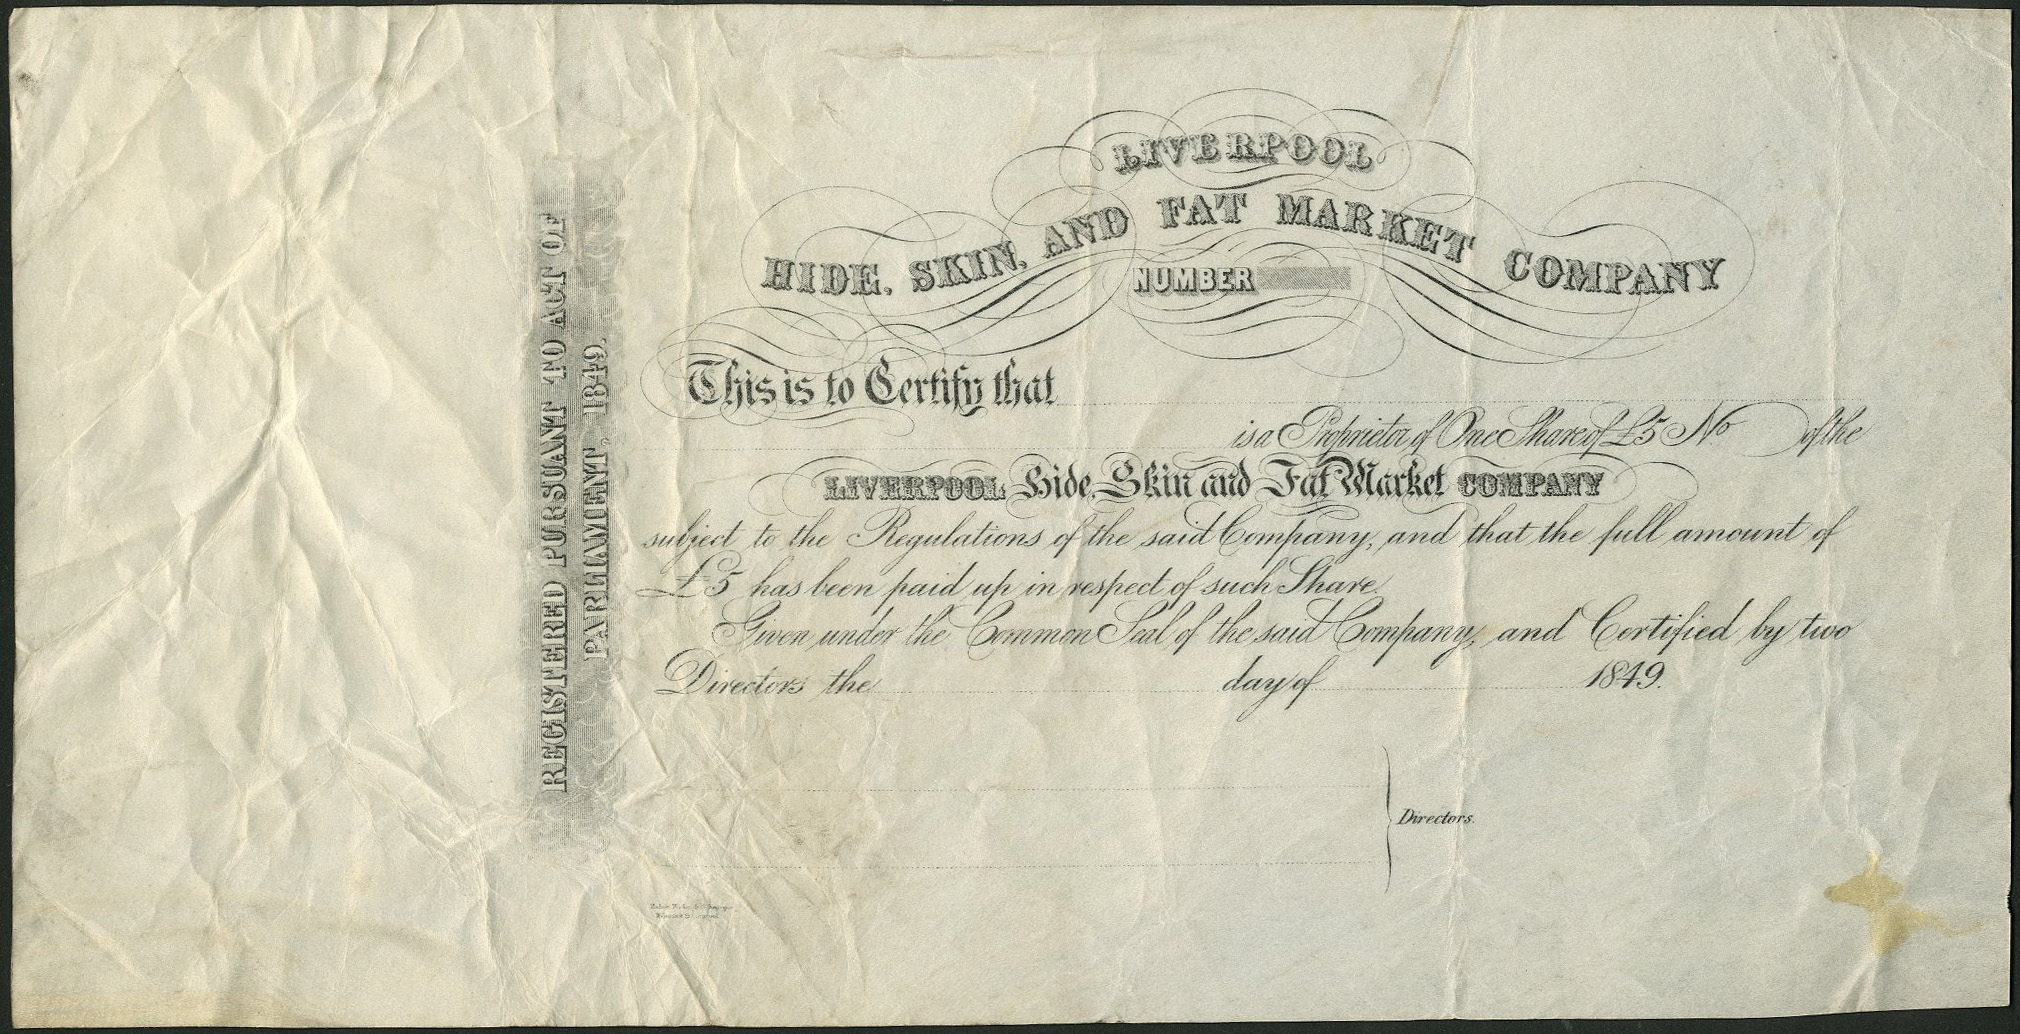 REGISTERED PURSUANT TO ACT OF
PARLIAMENT, 1849.
LIVERPOOL
HIDE, SKIN, AND FAT MARKET COMPANY
NUMBER
This is to Certify that
is a Proprietor of One Share of £5 No of the
LIVERPOOL Hide, Skin and Fat Market COMPANY
subject to the Regulations of the said Company, and that the full amount of
£5 has been paid up in respect of such Share.
Given under the Common Seal of the said Company, and Certified by two
Directors the day of 1849.
Directors.